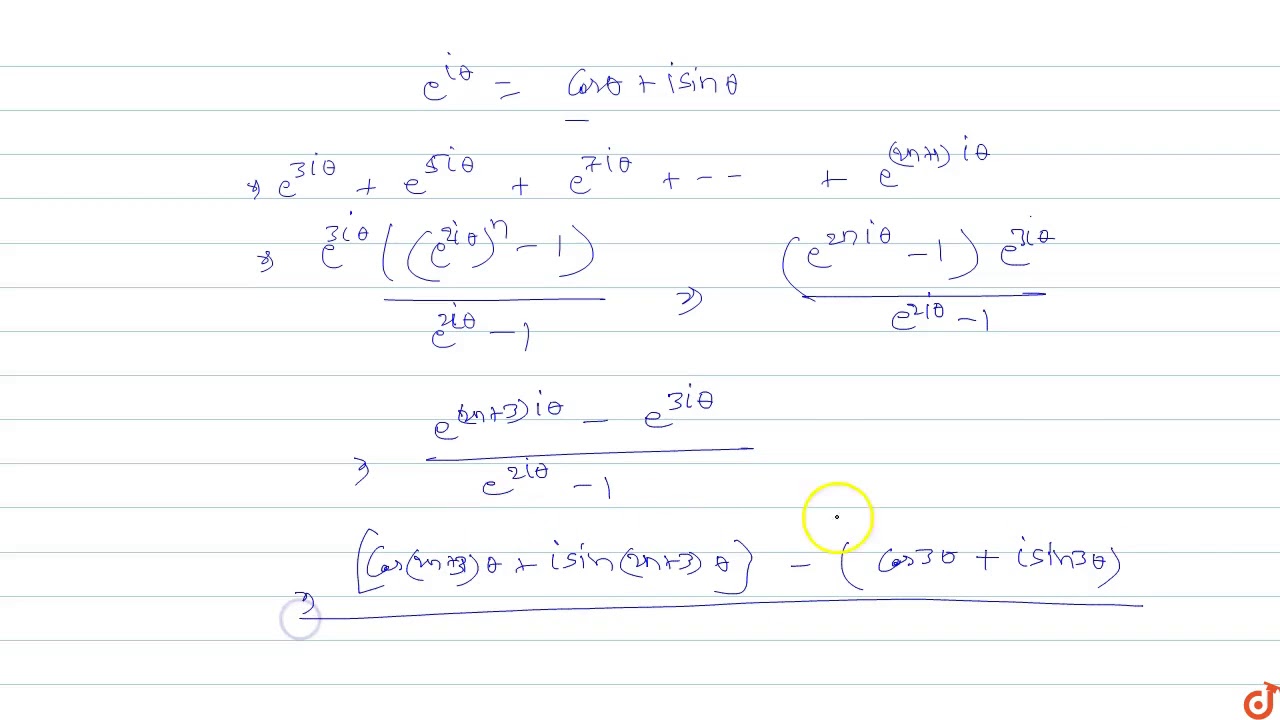 e^{iθ} = cosθ + isinθ
⇒ e^{3iθ} + e^{5iθ} + e^{7iθ} + -- - + e^{(2n+1)iθ}
⇒ e^{3iθ} ((e^{2iθ})^n - 1) / e^{2iθ} - 1 ⇒ (e^{2niθ} - 1) e^{3iθ} / e^{2iθ} - 1
⇒ e^{(2n+3)iθ} - e^{3iθ} / e^{2iθ} - 1
⇒ [cos(2n+3)θ + isin(2n+3)θ] - (cos3θ + isin3θ)